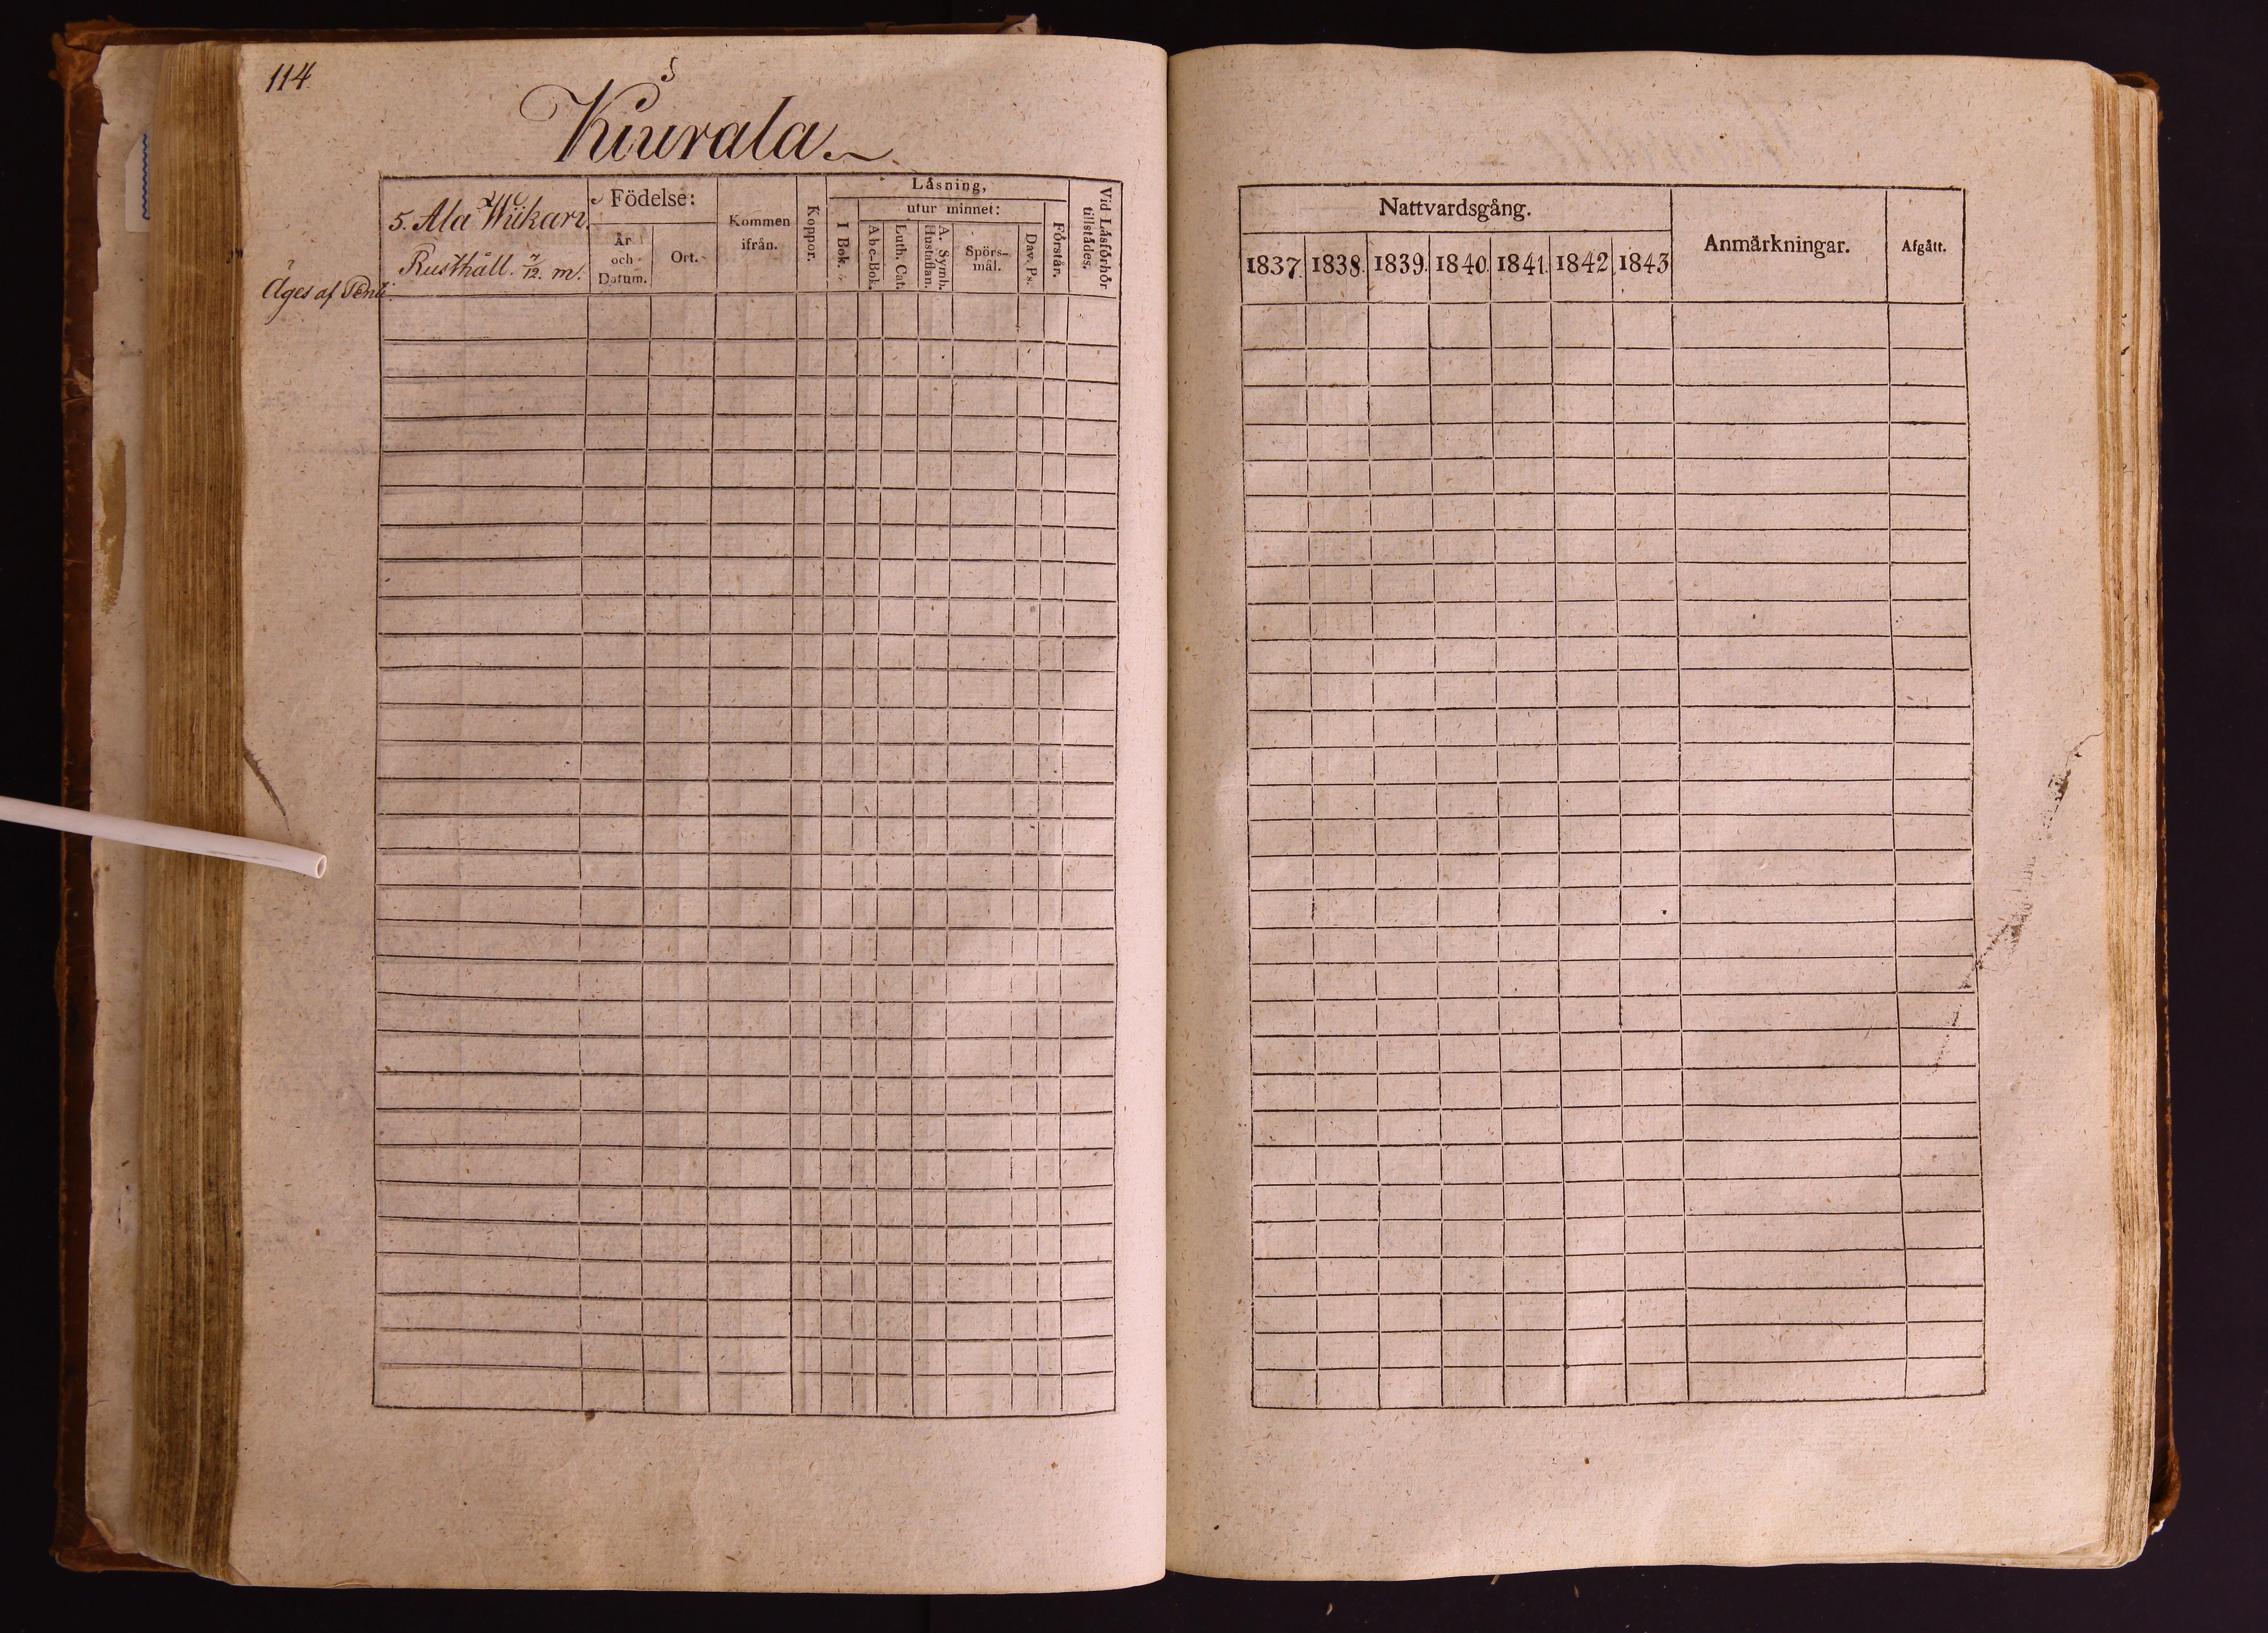 114.
5
Kiurala.
5. Ala Wiikari
Rusthåll. 7/12. m.
Äges af Penti.
Födelse:
År och Datum.
Ort.
Kommen ifrån.
Koppor.
Läsning,
utur minnet:
I Bok.
Abc-Bok.
Luth. Cat.
A. Symb. Hustaflan.
Spörs-
mål.
Dav. Ps.
Förstår.
Vid Läsförhör tillstädes.
Nattvardsgång.
1837. 1838. 1839. 1840. 1841. 1842 1843
Anmärkningar.
Afgått.